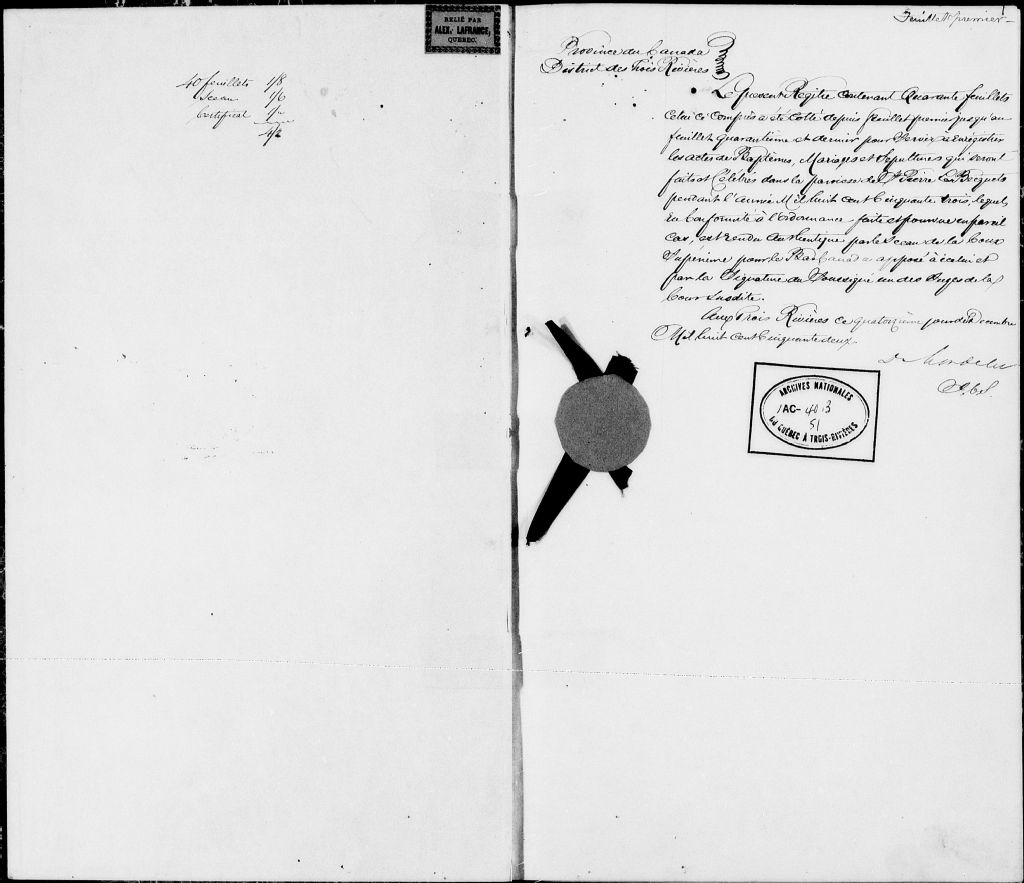 RELIÉ PAR
ALEX. LAFRANCE,
QUEBEC.
40 feuillets 1/8
Sceau 1/6
Certificat 1/"
4/2
Feuillet premier
Province du Canada
District des Trois Rivières
Le present Régître contenant Quarante feuillets
celui ci compris a été cotté depuis feuillet premier jusqu'au
feuillet quarantième et dernier pour servir à enrégistrer
les actes de Baptêmes, Mariages et Sepultures qui seront
faits et Célébrés dans la paroisse de St Pierre Les Becquets
pendant l'année Mil huit cent Cinquante trois, lequel,
en Conformité à l'Ordonnance faite et pourvue en pareil
cas, est rendu authentique par le Sceau de la Cour
Supérieure pour le Bas Canada apposé à icelui et
par la Signature du Soussigné un des Juges de la
Cour susdite.
Aux Trois Rivières ce quatorzième jour de Decembre
Mil huit cent Cinquante deux.
D. Mondelet
J.C.S.
ARCHIVES NATIONALES
1AC- 40.3
51
DU QUÉBEC À TROIS-RIVIÈRES